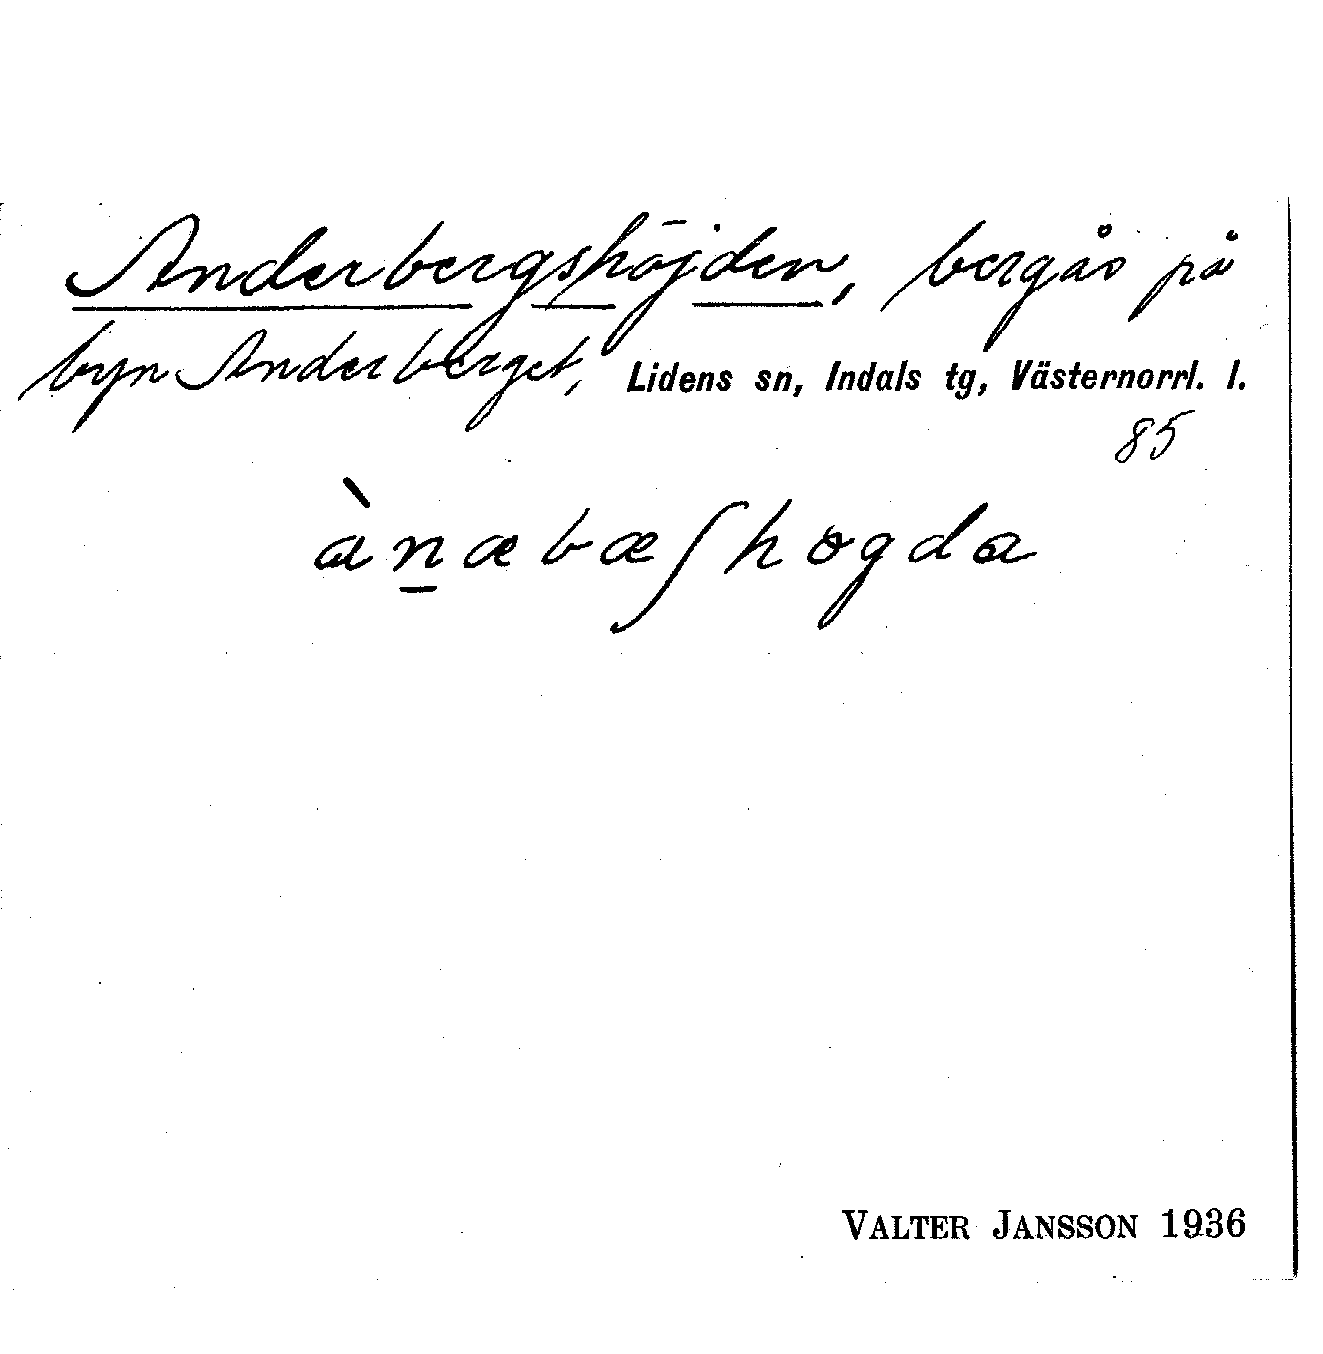 Anderbergshöjden, bergås på
byn Anderberget, Lidens sn, Indals tg, Västernorrl. l.
85
ànæbæʃhøgda
VALTER JANSSON 1936